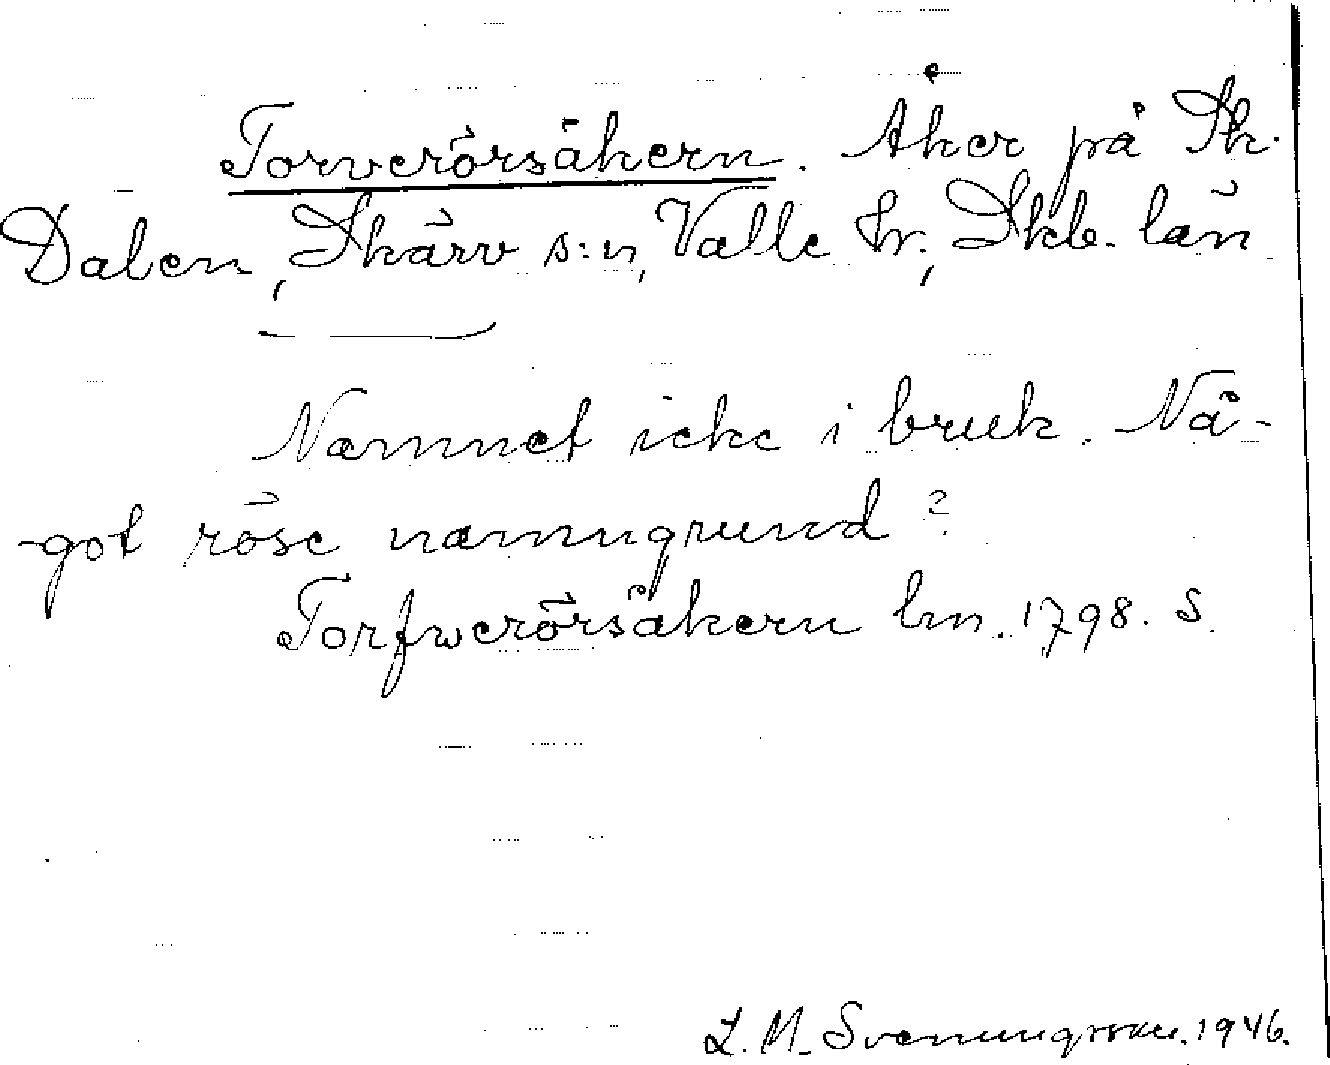 Torverörsåkern. Åker på Sk.
Dalen, Skärv s:n, Valle hr., Skb. län
Namnet icke i bruk. Nå-
-got röse namngrund?
Torfwerörsåkern lm. 1798. S
L. M. Svenungsson. 1946.